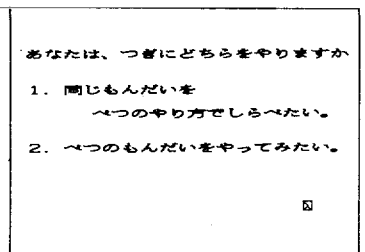 あなたは、つぎにどちらをやりますか
1. 同じもんだいを
べつのやり方でしらべたい。
2. べつのもんだいをやってみたい。